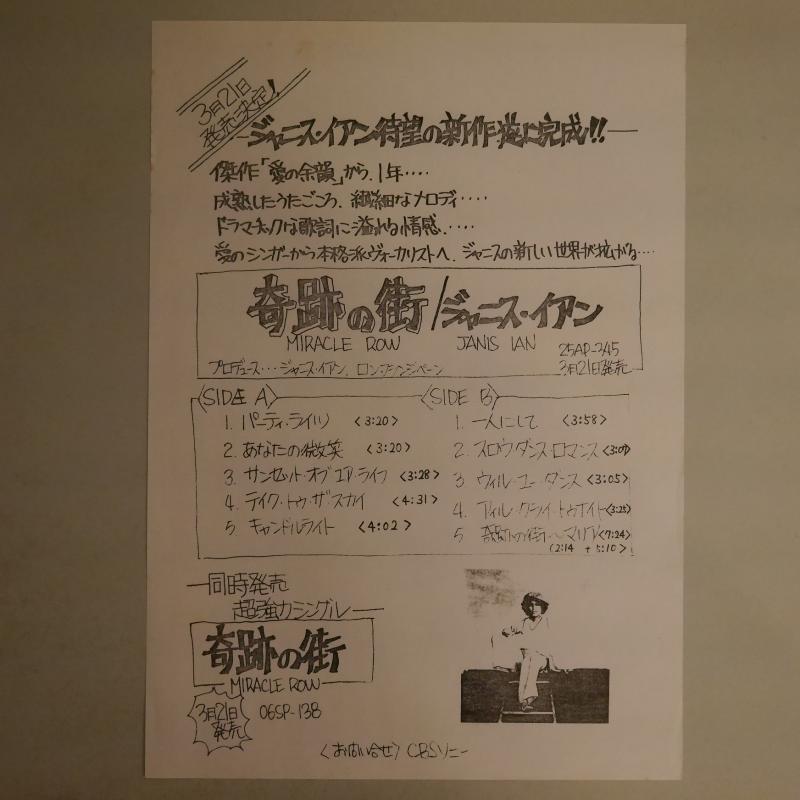 3月21日
発売決定!
ジャニス・イアン待望の新作遂に完成!!
傑作「愛の余韻」から、1年‥‥
成熟したうたごころ、繊細なメロディ‥‥
ドラマチックな歌詞に溢れる情感‥‥
愛のシンガーから本格派ヴォーカリストへ、ジャニスの新しい世界が拡がる‥‥
奇跡の街/ジャニス・イアン
MIRACLE ROW JANIS IAN 25AP-345
プロデュース‥‥ジャニス・イアン、ロン・フランジペーン 3月21日発売
〈SIDE A〉
1. パーティ・ライツ 〈3:20〉
2. あなたの微笑 〈3:20〉
3. サンセット・オブ・ユア・ライフ 〈3:28〉
4. テイク・トゥ・ザ・スカイ 〈4:31〉
5 キャンドルライト 〈4:02〉
〈SIDE B〉
1. 一人にして 〈3:58〉
2. スロウ・ダンス・ロマンス
3 ウィル・ユー・ダンス 〈3:05〉
4. アイル・クライ・トゥナイト〈3:25〉
5 奇跡の街〜マリア〈7:24〉
(2:14 + 5:10)
同時発売
超強力シングル
奇跡の街
MIRACLE ROW
3月21日
発売
06SP-138
〈お問い合せ〉CBSソニー